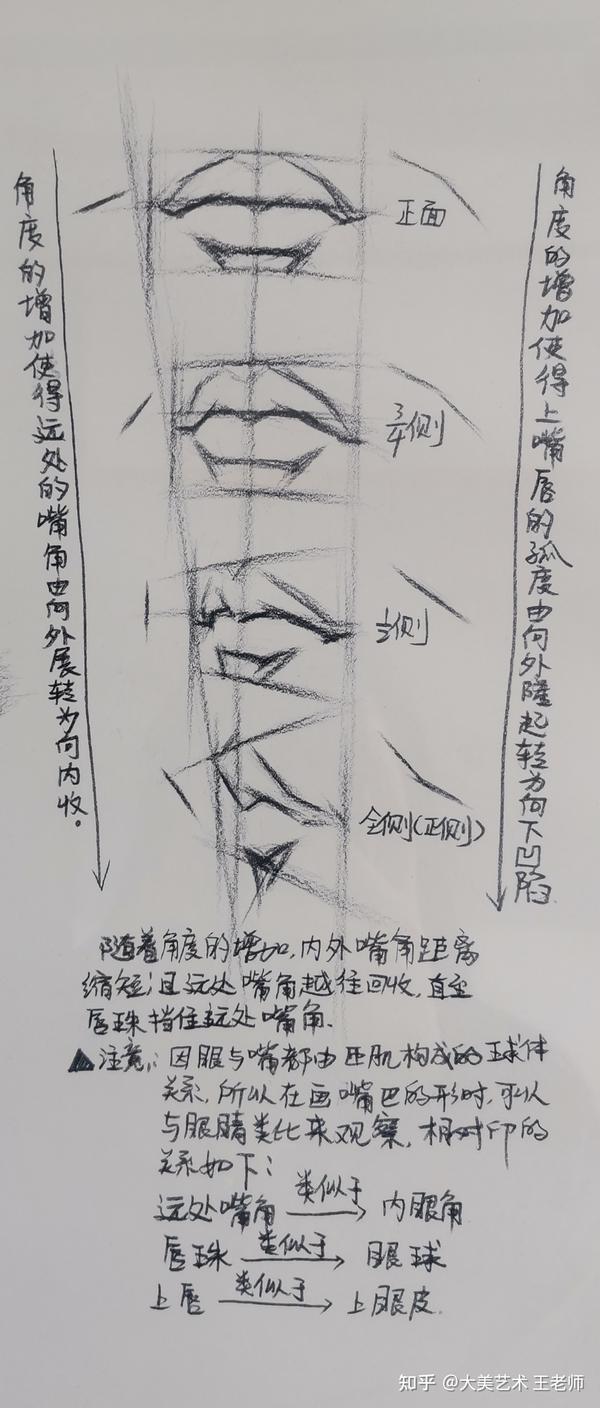 角度的增加使得远处的嘴角由向外展转为向内收。
角度的增加使得上嘴唇的弧度由向外隆起转为向下凹陷
正面
3/4侧
1/2侧
全侧(正侧)
随着角度的增加,内外嘴角距离
缩短;且远处嘴角越往回收,直至
唇珠挡住远处嘴角.
▲注意:因眼与嘴都由匝肌构成的球体
关系,所以在画嘴巴的形时,可以
与眼睛类比来观察,相对印的
关系如下:
远处嘴角 类似于→ 内眼角
唇珠 类似于→ 眼球
上唇 类似于→ 上眼皮.
知乎 @大美艺术 王老师